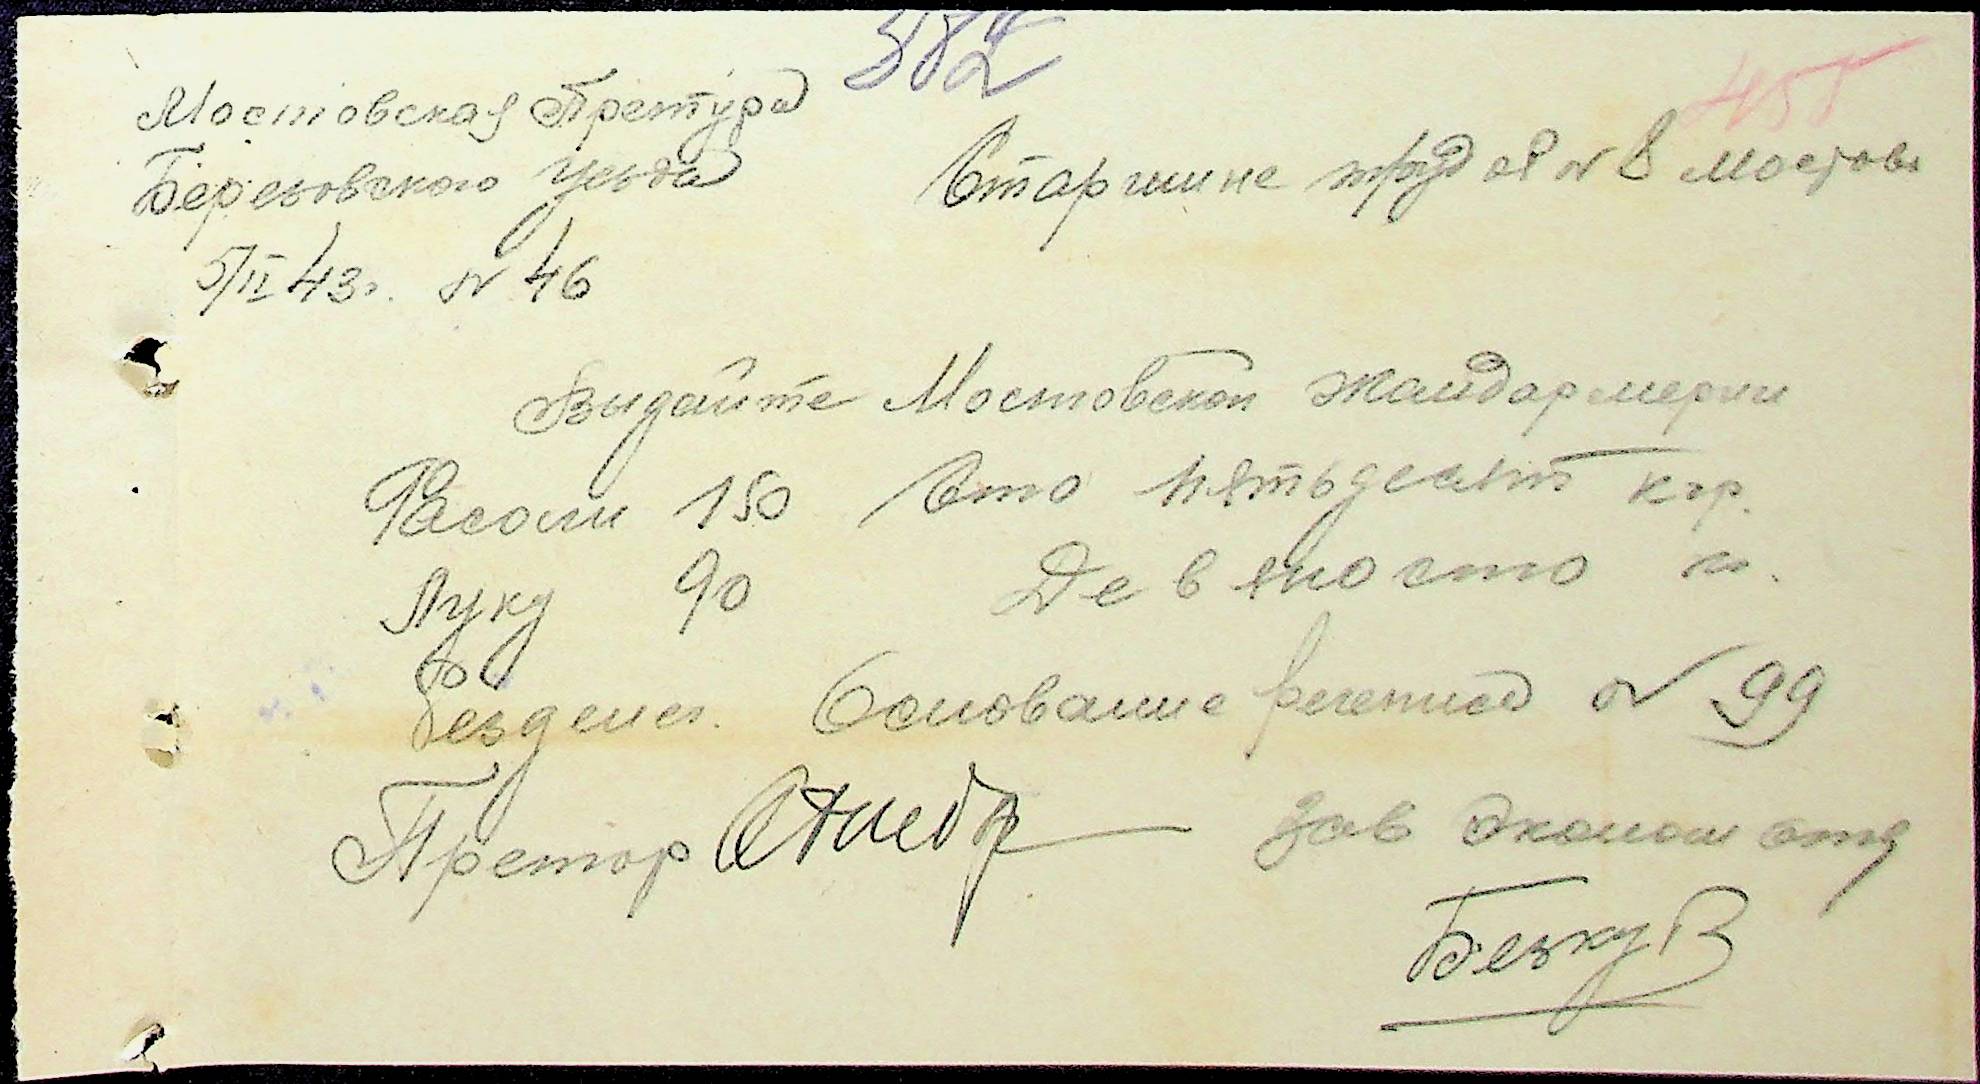 382
455
Мостовская Претура
Березовского Уезда
Старшине труд № 8 Мостов
5/II 43г. № 46
Выдайте Мостовской Жандармерии
Фасоли 150 Сто пятьдесят кгр.
Луку 90 Девяносто кг.
безденег. Основание № 99
Претор
Зав Эконом отд